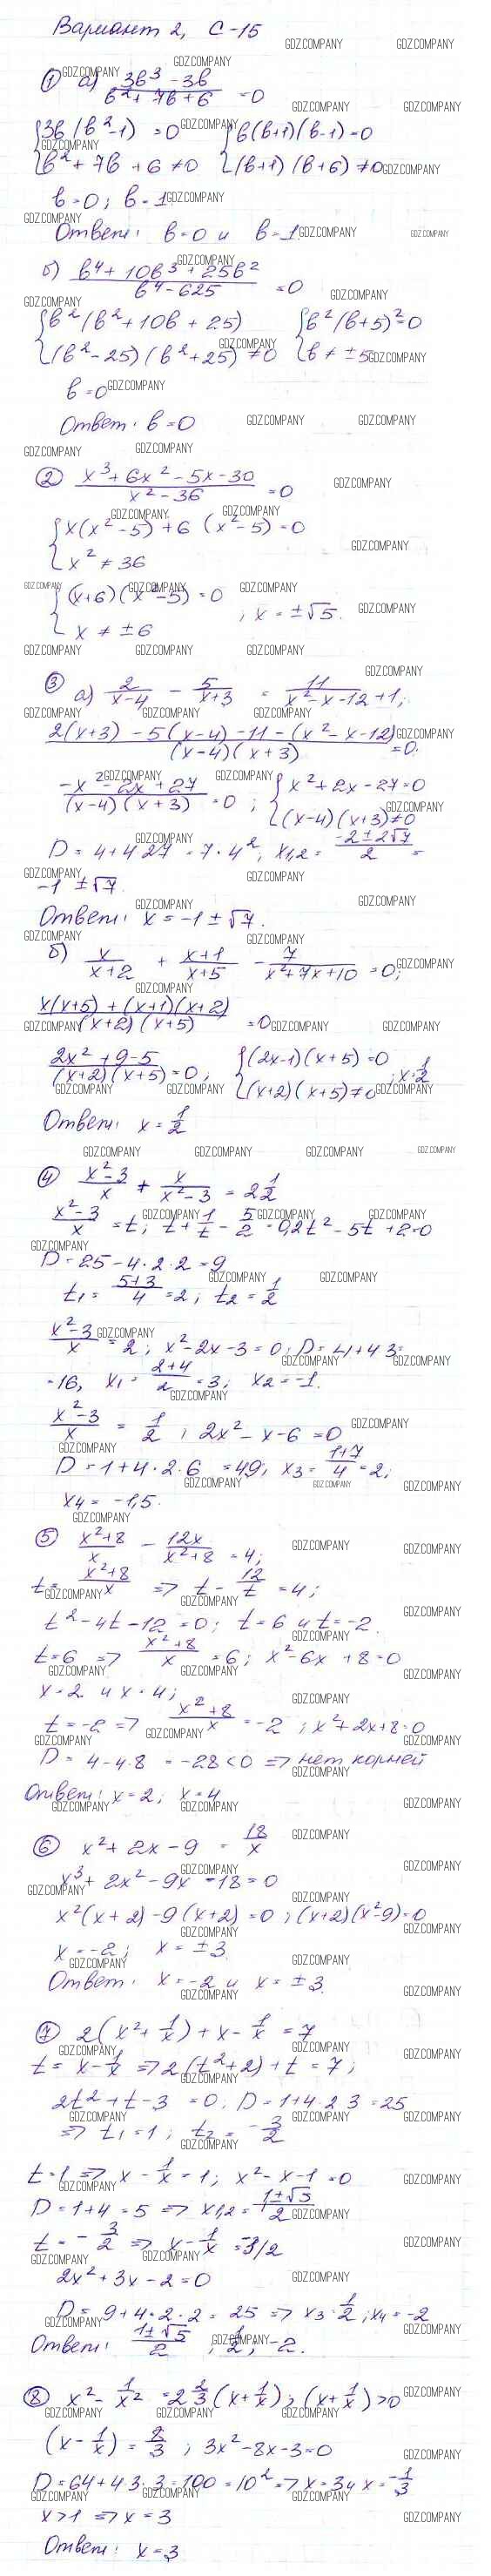 Вариант 2, С-15
① а) (3b³ - 3b)/(b² + 7b + 6) = 0
{3b(b²-1) = 0 {b(b+1)(b-1) = 0
{b² + 7b + 6 ≠ 0 {(b+1)(b+6) ≠ 0
b = 0; b = 1
Ответ: b = 0 и b = 1.
б) (b⁴ + 10b³ + 25b²)/(b⁴ - 625) = 0
{b²(b² + 10b + 25) {b²(b+5)² = 0
{(b² - 25)(b² + 25) ≠ 0 {b ≠ ± 5
b = 0
Ответ: b = 0
② (x³ + 6x² - 5x - 30)/(x² - 36) = 0
{x(x² - 5) + 6(x² - 5) = 0
{x² ≠ 36
{(x+6)(x² - 5) = 0
{x ≠ ± 6 ; x = ±√5.
③ а) 2/(x-4) - 5/(x+3) = 11/(x² - x - 12) + 1;
(2(x+3) - 5(x-4) - 11 - (x² - x - 12))/((x-4)(x+3)) = 0.
(-x² - 2x + 27)/((x-4)(x+3)) = 0 ; {x² + 2x - 27 = 0
{(x-4)(x+3) ≠ 0
D = 4 + 4·27 = 7·4²; x1,2 = (-2 ± 2√7)/2 =
-1 ± √7.
Ответ: x = -1 ± √7.
б) x/(x+2) + (x+1)/(x+5) - 7/(x² + 7x + 10) = 0;
(x(x+5) + (x+1)(x+2))/((x+2)(x+5)) = 0
(2x² + 9 - 5)/((x+2)(x+5)) = 0; {(2x-1)(x+5) = 0
{(x+2)(x+5) ≠ 0 ; x = 1/2
Ответ: x = 1/2
④ (x² - 3)/x + x/(x² - 3) = 2 1/2
(x² - 3)/x = t; t + 1/t - 5/2 = 0, 2t² - 5t + 2 = 0
D = 25 - 4·2·2 = 9
t₁ = (5+3)/4 = 2; t₂ = 1/2
(x² - 3)/x = 2; x² - 2x - 3 = 0; D = 4 + 4·3 =
= 16, x₁ = (2+4)/2 = 3; x₂ = -1.
(x² - 3)/x = 1/2 ; 2x² - x - 6 = 0
D = 1 + 4·2·6 = 49; x₃ = (1+7)/4 = 2;
x₄ = -1,5.
⑤ (x² + 8)/x - 12x/(x² + 8) = 4;
t = (x² + 8)/x => t - 12/t = 4;
t² - 4t - 12 = 0; t = 6 и t = -2.
t = 6 => (x² + 8)/x = 6; x² - 6x + 8 = 0
x = 2 и x = 4;
t = -2 => (x² + 8)/x = -2 ; x² + 2x + 8 = 0
D = 4 - 4·8 = -28 < 0 => нет корней
Ответ: x = 2; x = 4
⑥ x² + 2x - 9 = 18/x
x³ + 2x² - 9x - 18 = 0
x²(x+2) - 9(x+2) = 0 ; (x+2)(x² - 9) = 0
x = -2; x = ± 3
Ответ: x = -2 и x = ± 3.
⑦ 2(x² + 1/x) + x - 1/x = 7
t = x - 1/x => 2(t² + 2) + t = 7;
2t² + t - 3 = 0; D = 1 + 4·2·3 = 25
=> t₁ = 1; t₂ = -3/2
t = 1 => x - 1/x = 1; x² - x - 1 = 0
D = 1 + 4 = 5 => x1,2 = (1 ± √5)/2
t = -3/2 => x - 1/x = -3/2
2x² + 3x - 2 = 0
D = 9 + 4·2·2 = 25 => x₃ = 1/2; x₄ = -2
Ответ: (1 ± √5)/2 ; 1/2 ; -2.
⑧ x² - 1/x² = 2 2/3 (x + 1/x); (x + 1/x) > 0
(x - 1/x) = 8/3 ; 3x² - 8x - 3 = 0
D = 64 + 4·3·3 = 100 = 10² => x = 3 и x = -1/3
x > 1 => x = 3
Ответ: x = 3